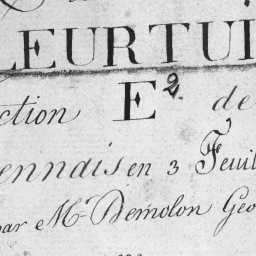 LEURTUI
ction E 2. de
ennais en 3 Feuil
par Mr Demolon Geo